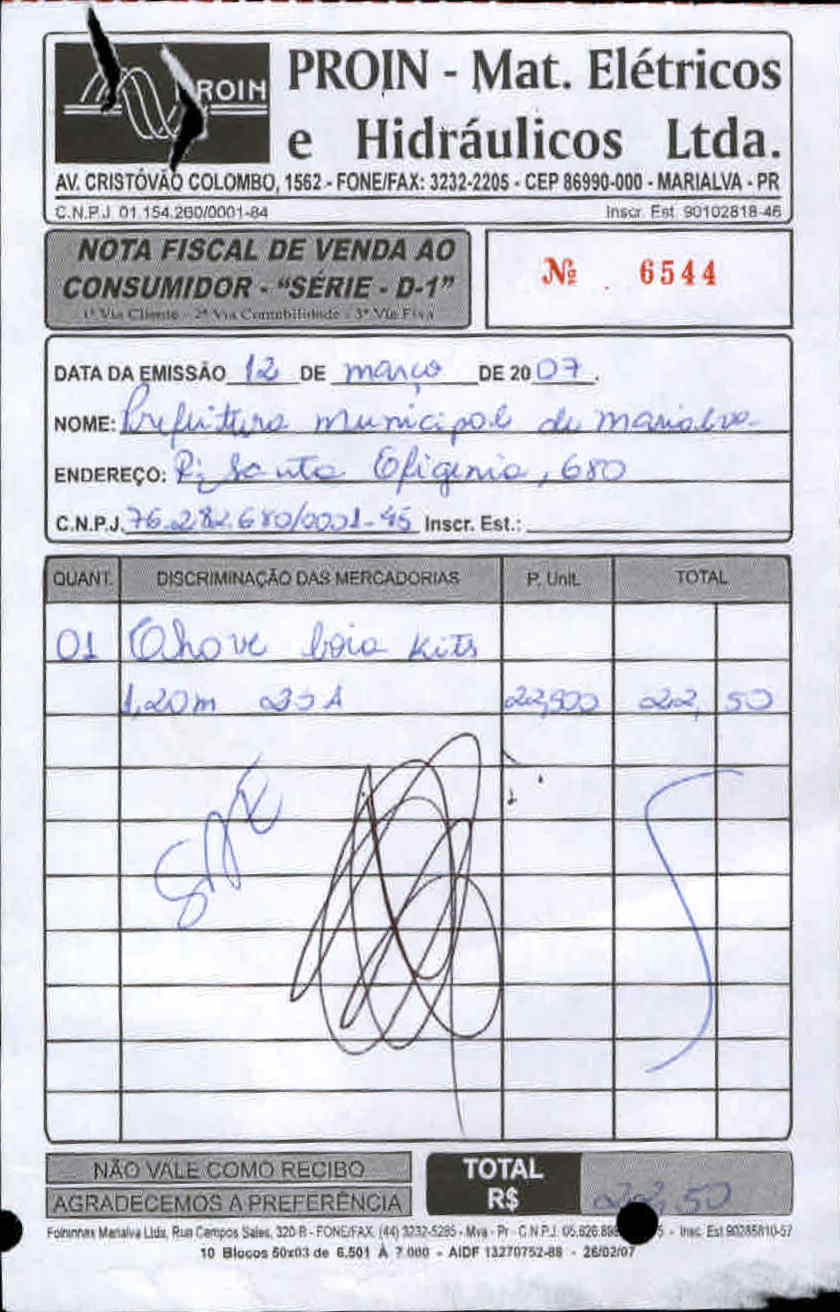 PROIN
PROIN - Mat. Elétricos
e Hidráulicos Ltda.
AV. CRISTÓVÃO COLOMBO, 1562 - FONE/FAX: 3232-2205 - CEP 86990-000 - MARIALVA - PR
C.N.P.J. 01.154.260/0001-84 Inscr. Est. 90102818-46
NOTA FISCAL DE VENDA AO
CONSUMIDOR - "SÉRIE - D-1"
1ª Via Cliente - 2ª Via Contabilidade - 3ª Via Fixa
Nº 6544
DATA DA EMISSÃO 12 DE março DE 2007.
NOME: Prefeitura municipal de marialva
ENDEREÇO: R: Santa Efigenia, 680
C.N.P.J. 76.282.680/0001-45 Inscr. Est.:
QUANT. DISCRIMINAÇÃO DAS MERCADORIAS P. Unit. TOTAL
01 Chave boia Kits
1,20m 25A 22,500 22,50
SAE
NÃO VALE COMO RECIBO
AGRADECEMOS A PREFERÊNCIA
TOTAL
R$ 22,50
Folhinhas Marialva Ltda, Rua Campos Sales, 320-B - FONE/FAX (44) 3232-5285 - Mva - Pr - C.N.P.J. 05.626. 5 - Insc. Est 90285810-57
10 Blocos 50x03 de 6.501 À 7.000 - AIDF 13270752-88 - 26/02/07